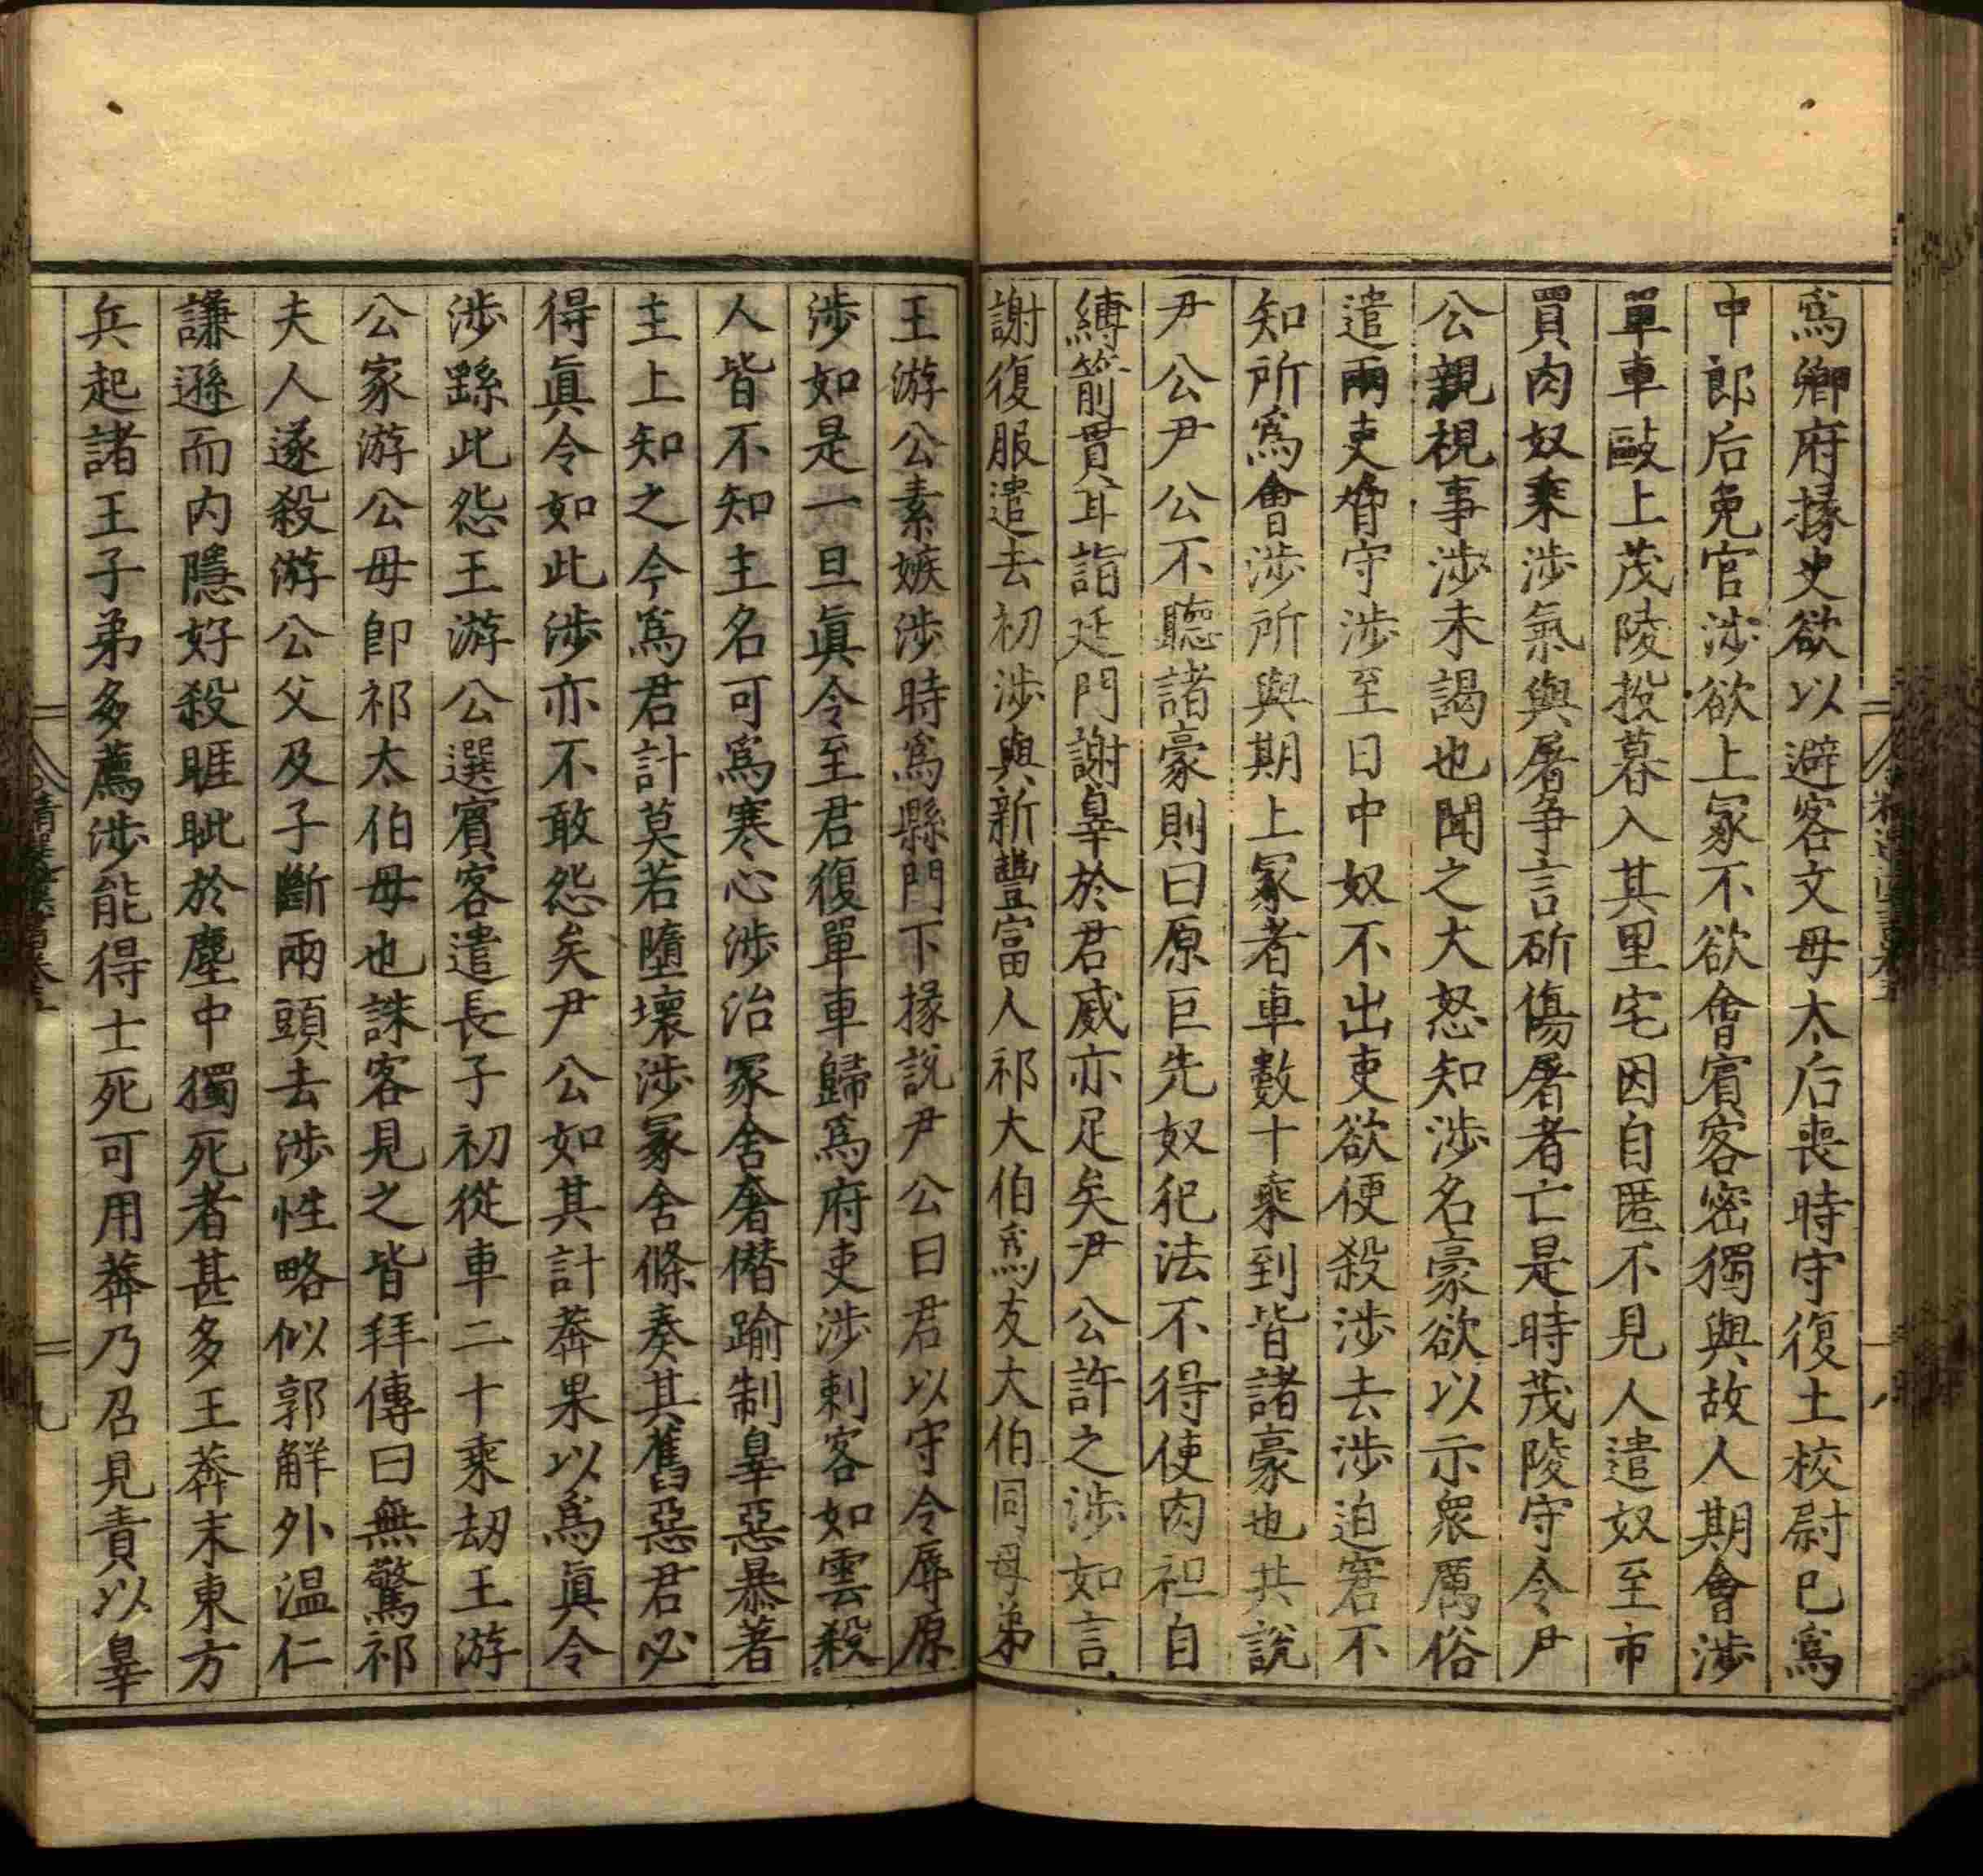 爲卿府掾史欲以避客文母太后喪時守復土校尉已爲
中郎后免官涉欲上冢不欲會賓客密獨與故人期會涉
單車敺上茂陵投暮入其里宅因自匿不見人遣奴至市
買肉奴乘涉氣與屠争言斫傷屠者亡是時茂陵守令尹
公親視事涉未謁也聞之大怒知涉名豪欲以示衆厲俗
遣兩吏脅守涉至日中奴不出吏欲便殺涉去涉迫窘不
知所爲會涉所與期上冢者車數十乘到皆諸豪也共說
尹公尹公不聽諸豪則曰原巨先奴犯法不得使肉袒自
縛箭貫耳詣廷門謝辠於君威亦足矣尹公許之涉如言
謝復服遣去初涉與新豐富人祁大伯爲友大伯同母弟
王游公素嫉涉時爲縣門下掾說尹公曰君以守令辱原
涉如是一旦眞令至君復單車歸爲府吏涉刺客如雲殺
人皆不知主名可爲寒心涉治冢舍奢僭踰制辠惡暴著
主上知之今爲君計莫若墮壞涉冢舍條奏其舊惡君必
得眞令如此涉亦不敢怨矣尹公如其計莽果以爲眞令
涉繇此怨王游公選賓客遣長子初從車二十乘劫王游
公家游公母卽祁太伯母也諸客見之皆拜傳曰無驚祁
夫人遂殺游公父及子斷兩頭去涉性略似郭解外温仁
謙遜而内隱好殺睚眦於塵中獨死者甚多王莽末東方
兵起諸王子弟多薦涉能得士死可用莽乃召見責以辠
九